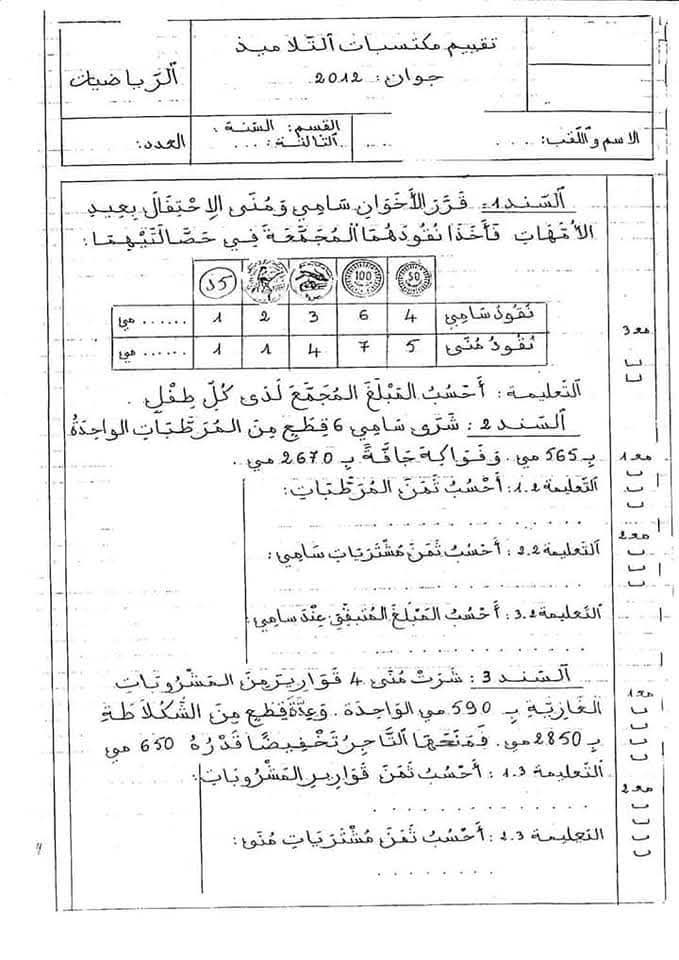 تقييم مكتسبات التلاميذ
جوان: 2012
الرياضيات
الاسم واللقب: . . . . . . .
القسم: السنة الثالثة: . . .
العدد:
السند 1: قَرَّرَ الأَخَوَانِ سَامِي وَمُنَى الإِحْتِفَالَ بِعِيدِ
الأُمَّهَاتِ فَأَخَذَا نُقُودَهُمَا المُجَمَّعَةَ فِي حَصَّالَتَيْهِمَا:
50 100 د5
نُقُودُ سَامِي 4 6 3 2 1 ...... مي
نُقُودُ مُنَى 5 7 4 1 1 ...... مي
مع3
التَّعليمة: أَحْسُبُ المَبْلَغَ المُجَمَّعَ لَدَى كُلِّ طِفْلٍ.
السند 2: شَرَى سَامِي 6 قِطَعٍ مِنَ المُرَطِّبَاتِ الوَاحِدَةُ
بِـ 565 مي. وَفَوَاكِهَ جَافَّةً بِـ 2670 مي.
مع1
التعليمة 1.2: أَحْسُبُ ثَمَنَ المُرَطِّبَاتِ:
. . . . . . . . . . . . . .
مع2
التعليمة 2.2: أَحْسُبُ ثَمَنَ مُشْتَرَيَاتِ سَامِي:
. . . . . . . . . . . . . .
التعليمة 3.2: أَحْسُبُ المَبْلَغَ المُتَبَقِّيَ عِنْدَ سَامِي:
. . . . . . . . . . . . . .
السند 3: شَرَتْ مُنَى 4 قَوَارِيرَ مِنَ المَشْرُوبَاتِ
الغَازِيَّةِ بِـ 590 مي الوَاحِدَةَ. وَعِدَّةَ قِطَعٍ مِنَ الشُّكُلَاطَةِ
مع1
بِـ 2850 مي. فَمَنَحَهَا التَّاجِرُ تَخْفِيضًا قَدْرُهُ 650 مي
التعليمة 1.3: أَحْسُبُ ثَمَنَ قَوَارِيرِ المَشْرُوبَاتِ:
مع2
. . . . . . . . . .
التعليمة 2.3: أَحْسُبُ ثَمَنَ مُشْتَرَيَاتِ مُنَى:
. . . . . . . .